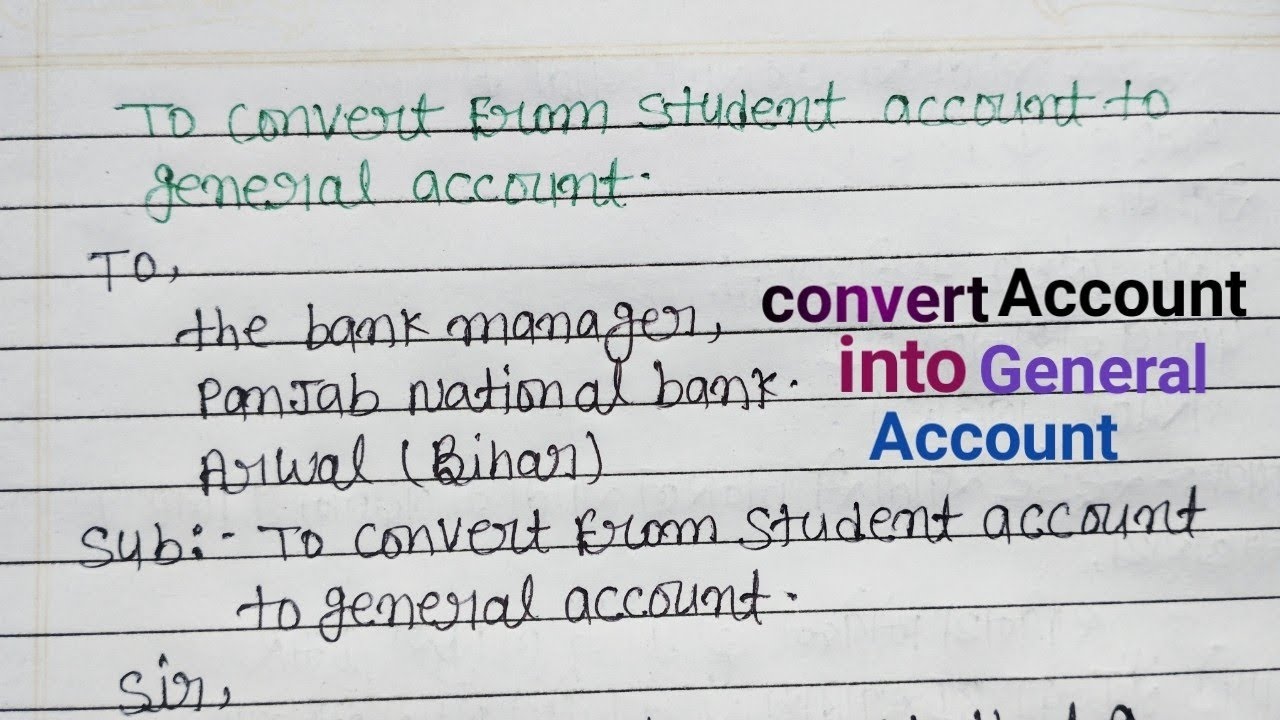 To convert from student account to
general account.
To,
the bank manager,
Panjab National bank.
Arwal (Bihar)
Sub:- To convert from student account
to general account.
Sir,
convert Account
into General
Account